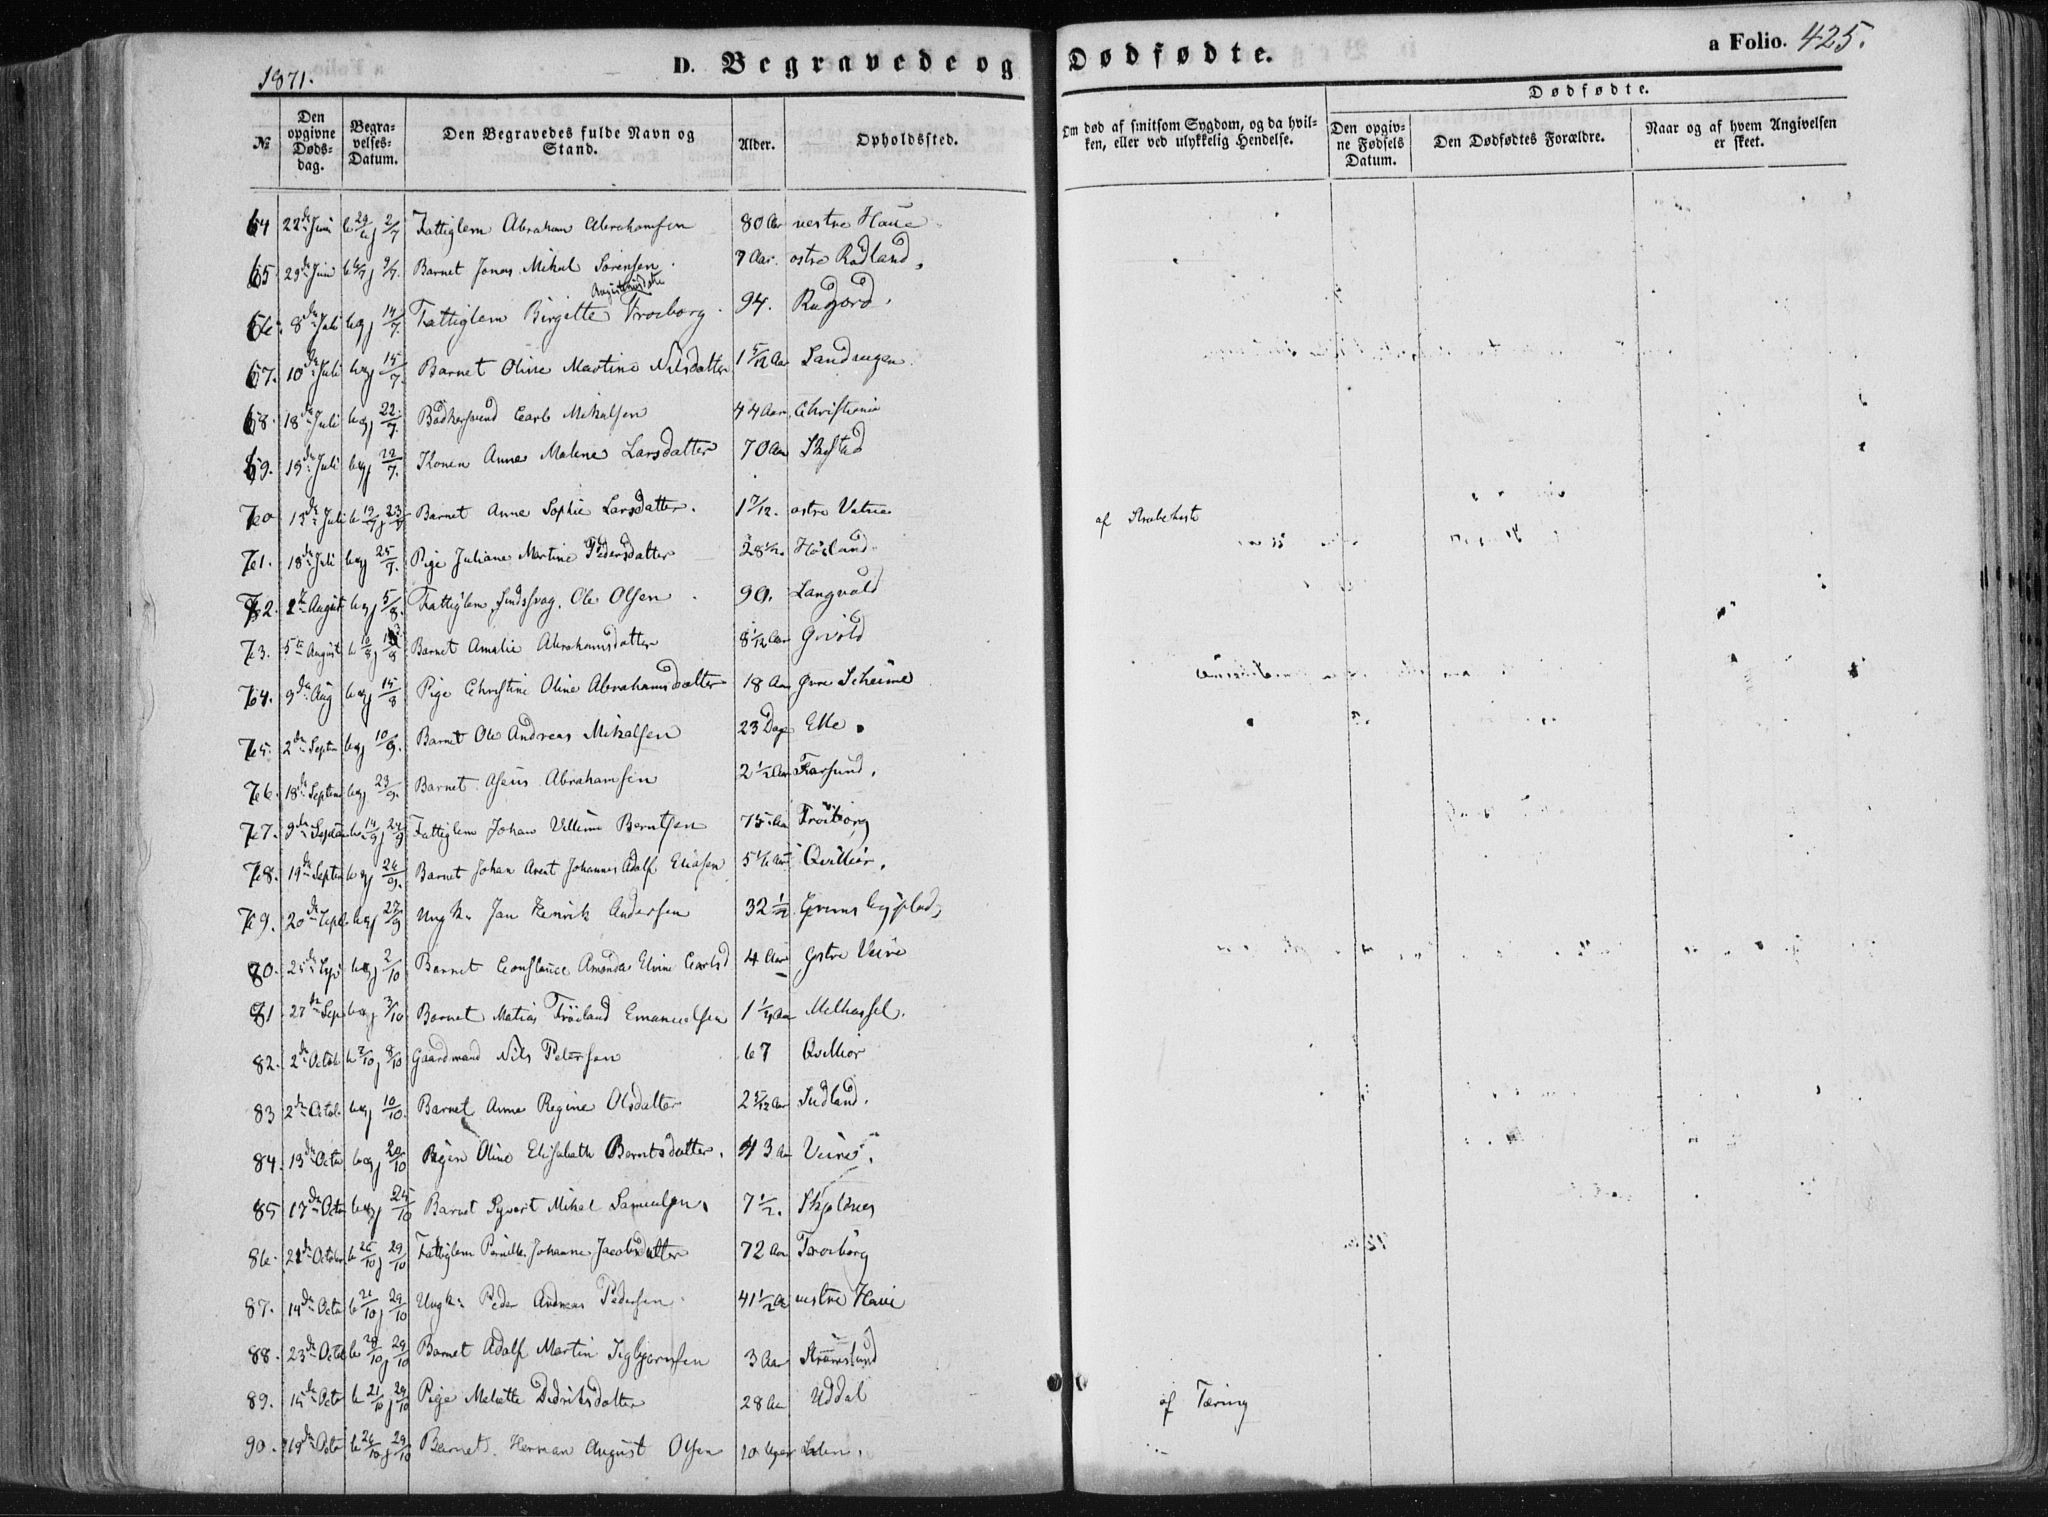 1871.
D. Begravede og Dødfødte.
a Folio. 425.
№
Den opgivne Døds-dag.
Begra-velses-Datum.
Den Begravedes fulde Navn og Stand.
Alder.
Opholdssted.
Om død af smitsom Sygdom, og da hvil-ken, eller ved ulykkelig Hendelse.
Dødfødte.
Den opgiv-ne Fødsels Datum.
Den Dødfødtes Forældre.
Naar og af hvem Angivelsen er skeet.
64 22de Juni b 29/6 j 2/7 Fattiglem Abraham Abrahamsen 80 Aar vestre Haue
65. 29de Juni b 6/7 j 9/7. Barnet Jonas Mikal Sørensen. 7 Aar. østre Rødland.
66. 8de Juli beg 14/7. Fattiglem Birgitte Froeborg. 94. Rudjord.
67. 10de Juli beg 15/7. Barnet Oline Martine Nilsdatter 1 5/12 Aar
68. 18de Juli beg 22/7. Bødkersvend Carl Mikalsen 44 Aar. Christiania
69. 15de Juli beg 22/7. Konen Anne Malene Larsdatter 70 Aar
70 15de Juli b 19/7 j 23/7 Barnet Anne Sophie Larsdatter. 1 7/12. østre Vatne af Strubehoste
71. 18de Juli beg 25/7. Pige Juliane Martine Pedersdatter 28 1/2. Høiland
72. August beg 5/8. Fattiglem Ole Olsen 90. Langvold
73. 5te August b 10/8 j Barnet Amalie Abrahamsdatter 8 1/12 Aar
74. 9de Aug beg 15/8 Pige Christine Oline Abrahamsdatter 18 Aar øvre Scheime
75. 2de Septr beg 10/9. Barnet Ole Andreas Mikalsen 23 Dage Elle.
76. 18de Septem beg 23/9. Barnet Asens Abrahamsen 2 1/2 Aar Farsund.
77. 9de Septem b 14/9 j 24/9 Fattiglem Johan Villum Berntsen 75 Aar Froiborg
78. 19de Septem beg 26/9. Barnet Johan Arent Johannes Adolf Eliasen 5 1/6 Aar Qvilliör.
79. 20de Septe beg 27/9 Ungk. Jan Henrik Andersen 32 1/2
80. 25de beg 2/10 Barnet Constance Amanda Elvine Carlsd 4 Aar
81 27de Sep beg 3/10 Barnet Matias Fröiland Emanuelsen 1 1/4 Aar Melhassel.
82. 2de Octob b 7/10 j 8/10 Gaardmand Nils Petersen 67 Qvillior
83 2de Octob. beg 10/10. Barnet Anne Regine Olsdatter 2 5/12 Aar Sudland.
84. 13de Octo beg 20/10 Pigen Oline Elisabeth Berntsdatter. 43 Aar
85 17de Octo beg 24/10 Barnet Sywert Mikal Samuelsen. 7 1/2.
86. 21de October b 26/10 j 29/10 Fattiglem Pernille Johanne Jacobsdatter 72 Aar Froiborg
87. 14de Octo b 21/10 j 29/10 Ungk: Peder Andreas Pedersen 41 1/2 Aar vestre Haue
88. 23de Octob b 28/10 j 29/10 Barnet Adolf Martin Sigbjørnsen 3 Aar
89. 15de Octo b 21/10 j 29/10 Pige Didriksdatter 28 Aar Uddal af Tæring
90. 19de Octo b 26/10 j 29/10 Barnet Herman August Olsen 10 Uger